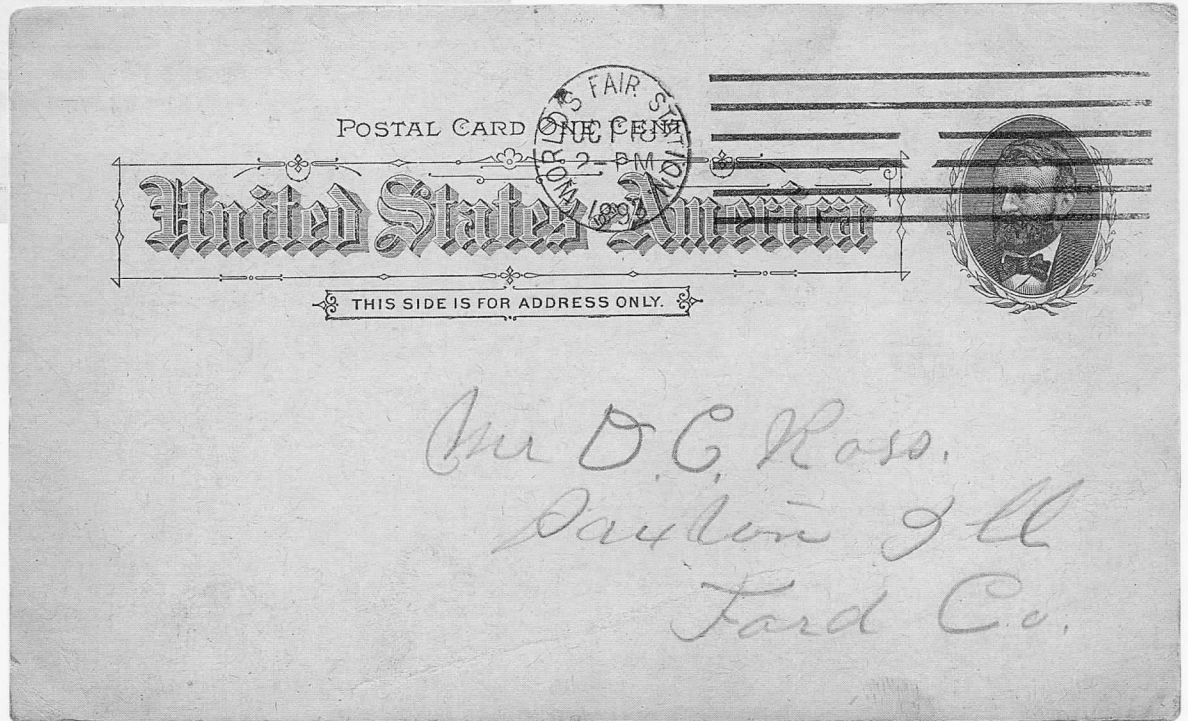 POSTAL CARD ONE CENT
WORLD'S FAIR STATION
OCT
2-PM
1893
United States America
THIS SIDE IS FOR ADDRESS ONLY.
Mr D. C. Ross.
Paxton Ill
Ford Co.